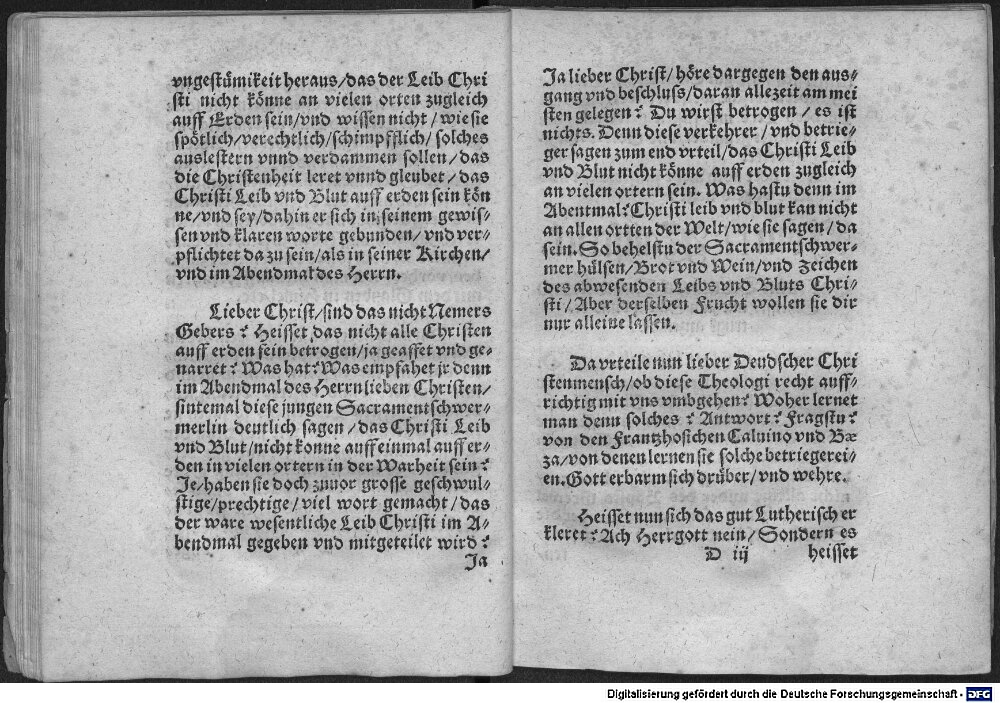 vngestümikeit heraus/das der Leib Chri
sti nicht könne an vielen orten zugleich
auff Erden sein/vnd wissen nicht/wie sie
spötlich/verechtlich/schimpfflich/ solches
auslestern vnnd verdammen sollen/das
die Christenheit leret vnnd gleubet/das
Christi Leib vnd Blut auff erden sein kön
ne/vnd sey/dahin er sich in seinem gewis-
sen vnd klaren worte gebunden/vnd ver-
pflichtet da zu sein/als in seiner Kirchen/
vnd im Abendmal des Herrn.
Lieber Christ/sind das nicht Nemers
Gebers? Heisset das nicht alle Christen
auff erden fein betrogen/ja geaffet vnd ge-
narret? Was hat? Was empfahet jr denn
im Abendmal des Herrn lieben Christen/
sintemal diese jungen Sacramentschwer-
merlin deutlich sagen/das Christi Leib
vnd Blut/nicht konne auff einmal auff er-
den in vielen ortern in der Warheit sein?
Je/haben sie doch zuuor grosse geschwul-
stige/prechtige/viel wort gemacht/das
der ware wesentliche Leib Christi im A-
bendmal gegeben vnd mitgeteilet wird?
Ja
Ja lieber Christ/höre dargegen den aus-
gang vnd beschluss/daran allezeit am mei
sten gelegen? Du wirst betrogen/es ist
nichts. Denn diese verkehrer/vnd betrie-
ger sagen zum end vrteil/das Christi Leib
vnd Blut nicht könne auff erden zugleich
an vielen ortern sein. Was hastu denn im
Abentmal? Christi leib vnd blut kan nicht
an allen ortten der Welt/wie sie sagen/da
sein. So behelstu der Sacramentschwer-
mer hülsen/Brot vnd Wein/vnd Zeichen
des abwesenden Leibs vnd Bluts Chri-
sti/Aber derselben Frucht wollen sie dir
nur alleine lassen.
Da vrteile nun lieber Deudscher Chri
stenmensch/ob diese Theologi recht auff-
richtig mit vns vmbgehen? Woher lernet
man denn solches? Antwort? Fragstu?
von den Frantzhosichen Caluino vnd Bæ
za/von denen lernen sie solche betriegerei-
en. Gott erbarm sich drüber/vnd wehre.
Heisset nun sich das gut Lutherisch er
kleret? Ach Herrgott nein/Sondern es
D iij heisset
Digitalisierung gefördert durch die Deutsche Forschungsgemeinschaft - DFG